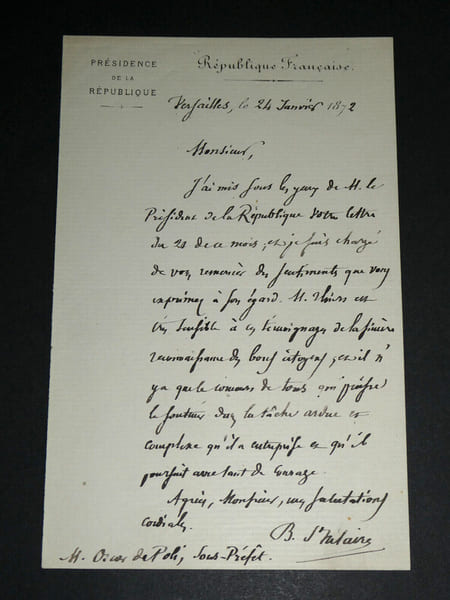 PRÉSIDENCE
DE LA
RÉPUBLIQUE
République Française.
Versailles, le 24 Janvier 1872
Monsieur,
J'ai mis sous les yeux de M. le
Président de la République votre lettre
du 21 de ce mois ; et je suis chargé
de vous remercier des sentiments que vous
exprimez à son égard. M. Thiers est
très sensible à ces témoignages de la sincère
reconnaissance des bons citoyens ; et il n'
y a que le concours de tous qui puisse
le soutenir dans la tâche ardue et
complexe qu'il a entreprise et qu'il
poursuit avec tant de courage.
Agréez, Monsieur, mes salutations
cordiales.
B. St Hilaire
M. Oscar de Poli, Sous-Préfet.